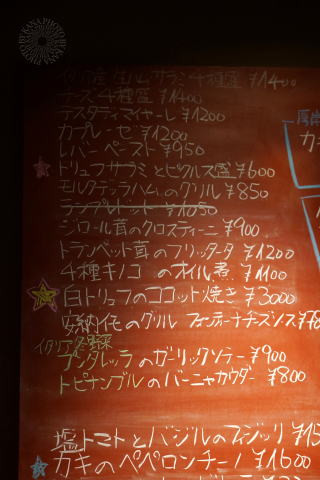 イタリア産 生ハムサラミ4種盛 ¥1400
チーズ4種盛 ¥1400
テスタディマイヤーレ ¥1200
カプレーゼ ¥1200
レバーペースト ¥950
トリュフサラミとピクルス盛 ¥600
モルタデッラハムのグリル ¥850
ランプレドット ¥1050
ジロール茸のクロスティーニ ¥900
トランペット茸のフリッタータ ¥1200
4種キノコのオイル煮 ¥1100
白トリュフのココット焼き ¥3000
安納イモのグリル フォンティーナチーズソース
イタリア冬野菜
プンタレッラのガーリックソテー ¥900
トピナンブルのバーニャカウダー ¥800
塩トマトとバジルのフジッリ
カキのペペロンチーノ ¥1600